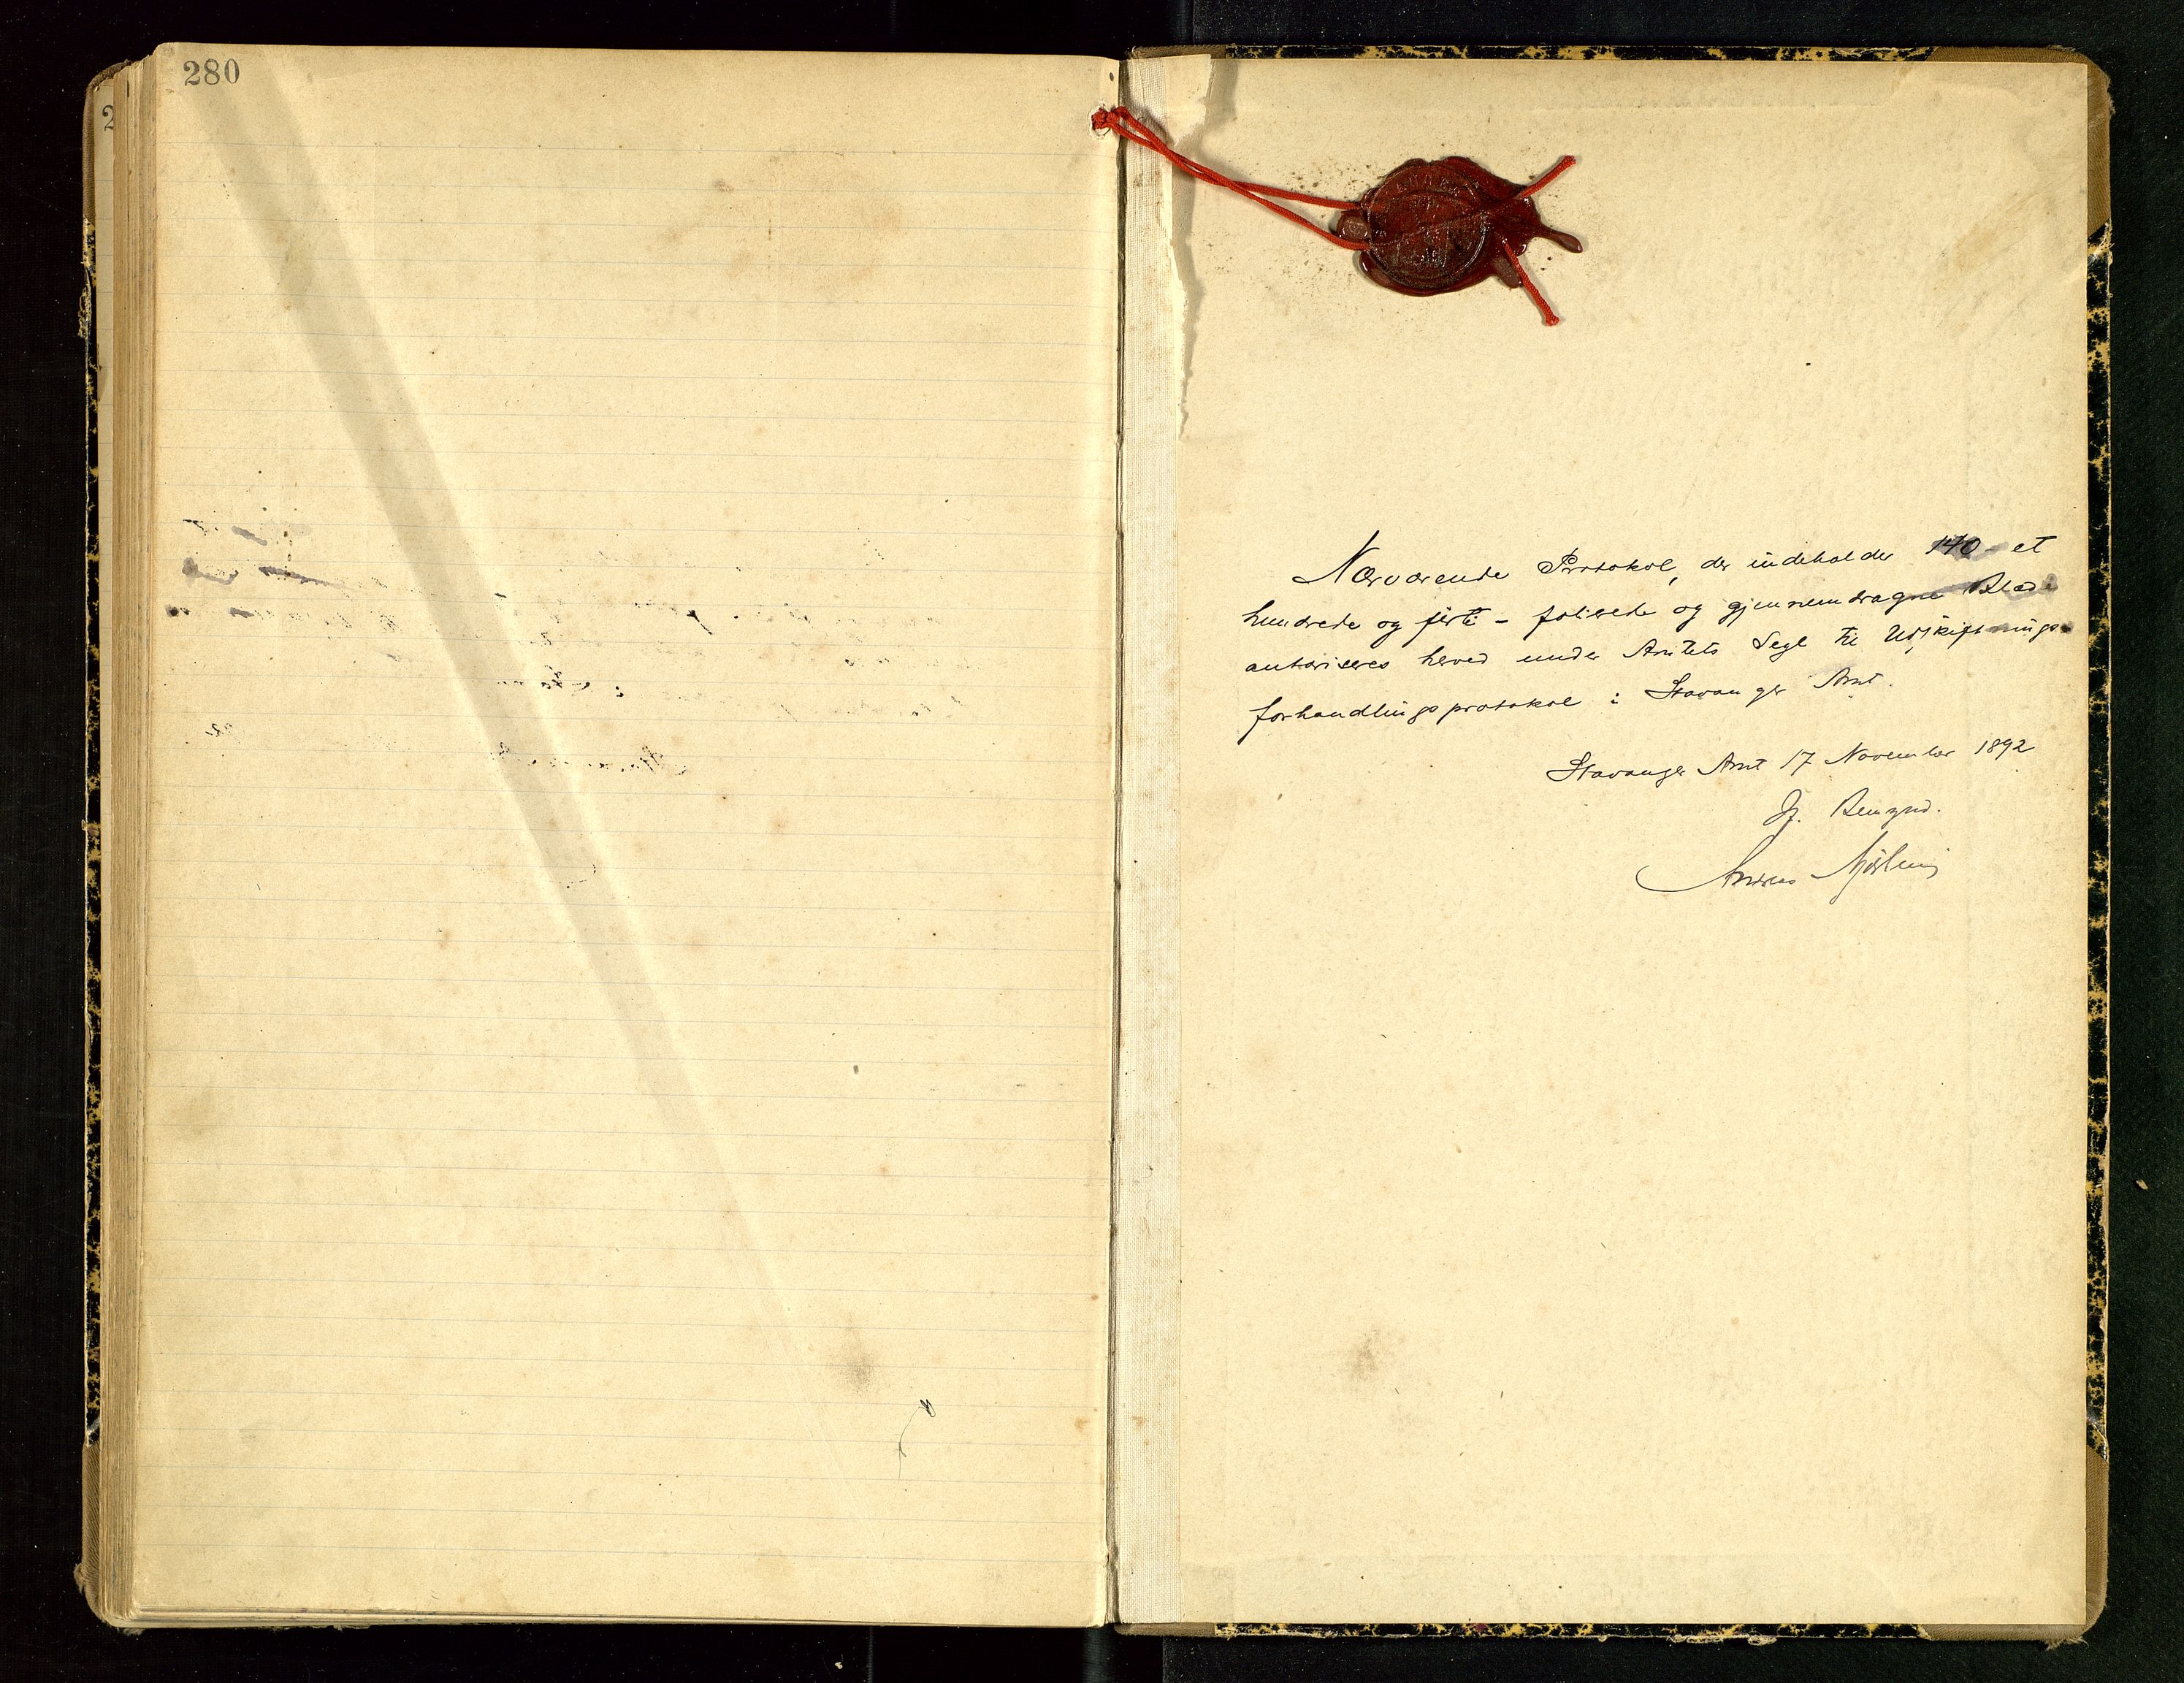 280
2
Nærværende Protokol, der indeholder 140 - et
hundrede og firti - folierede og gjennemdragne Blade
autoriseres herved under Amtets Segl til Udskiftnings-
forhandlingsprotokol i Stavanger Amt.
Stavanger Amt 17 November 1892
Andreas